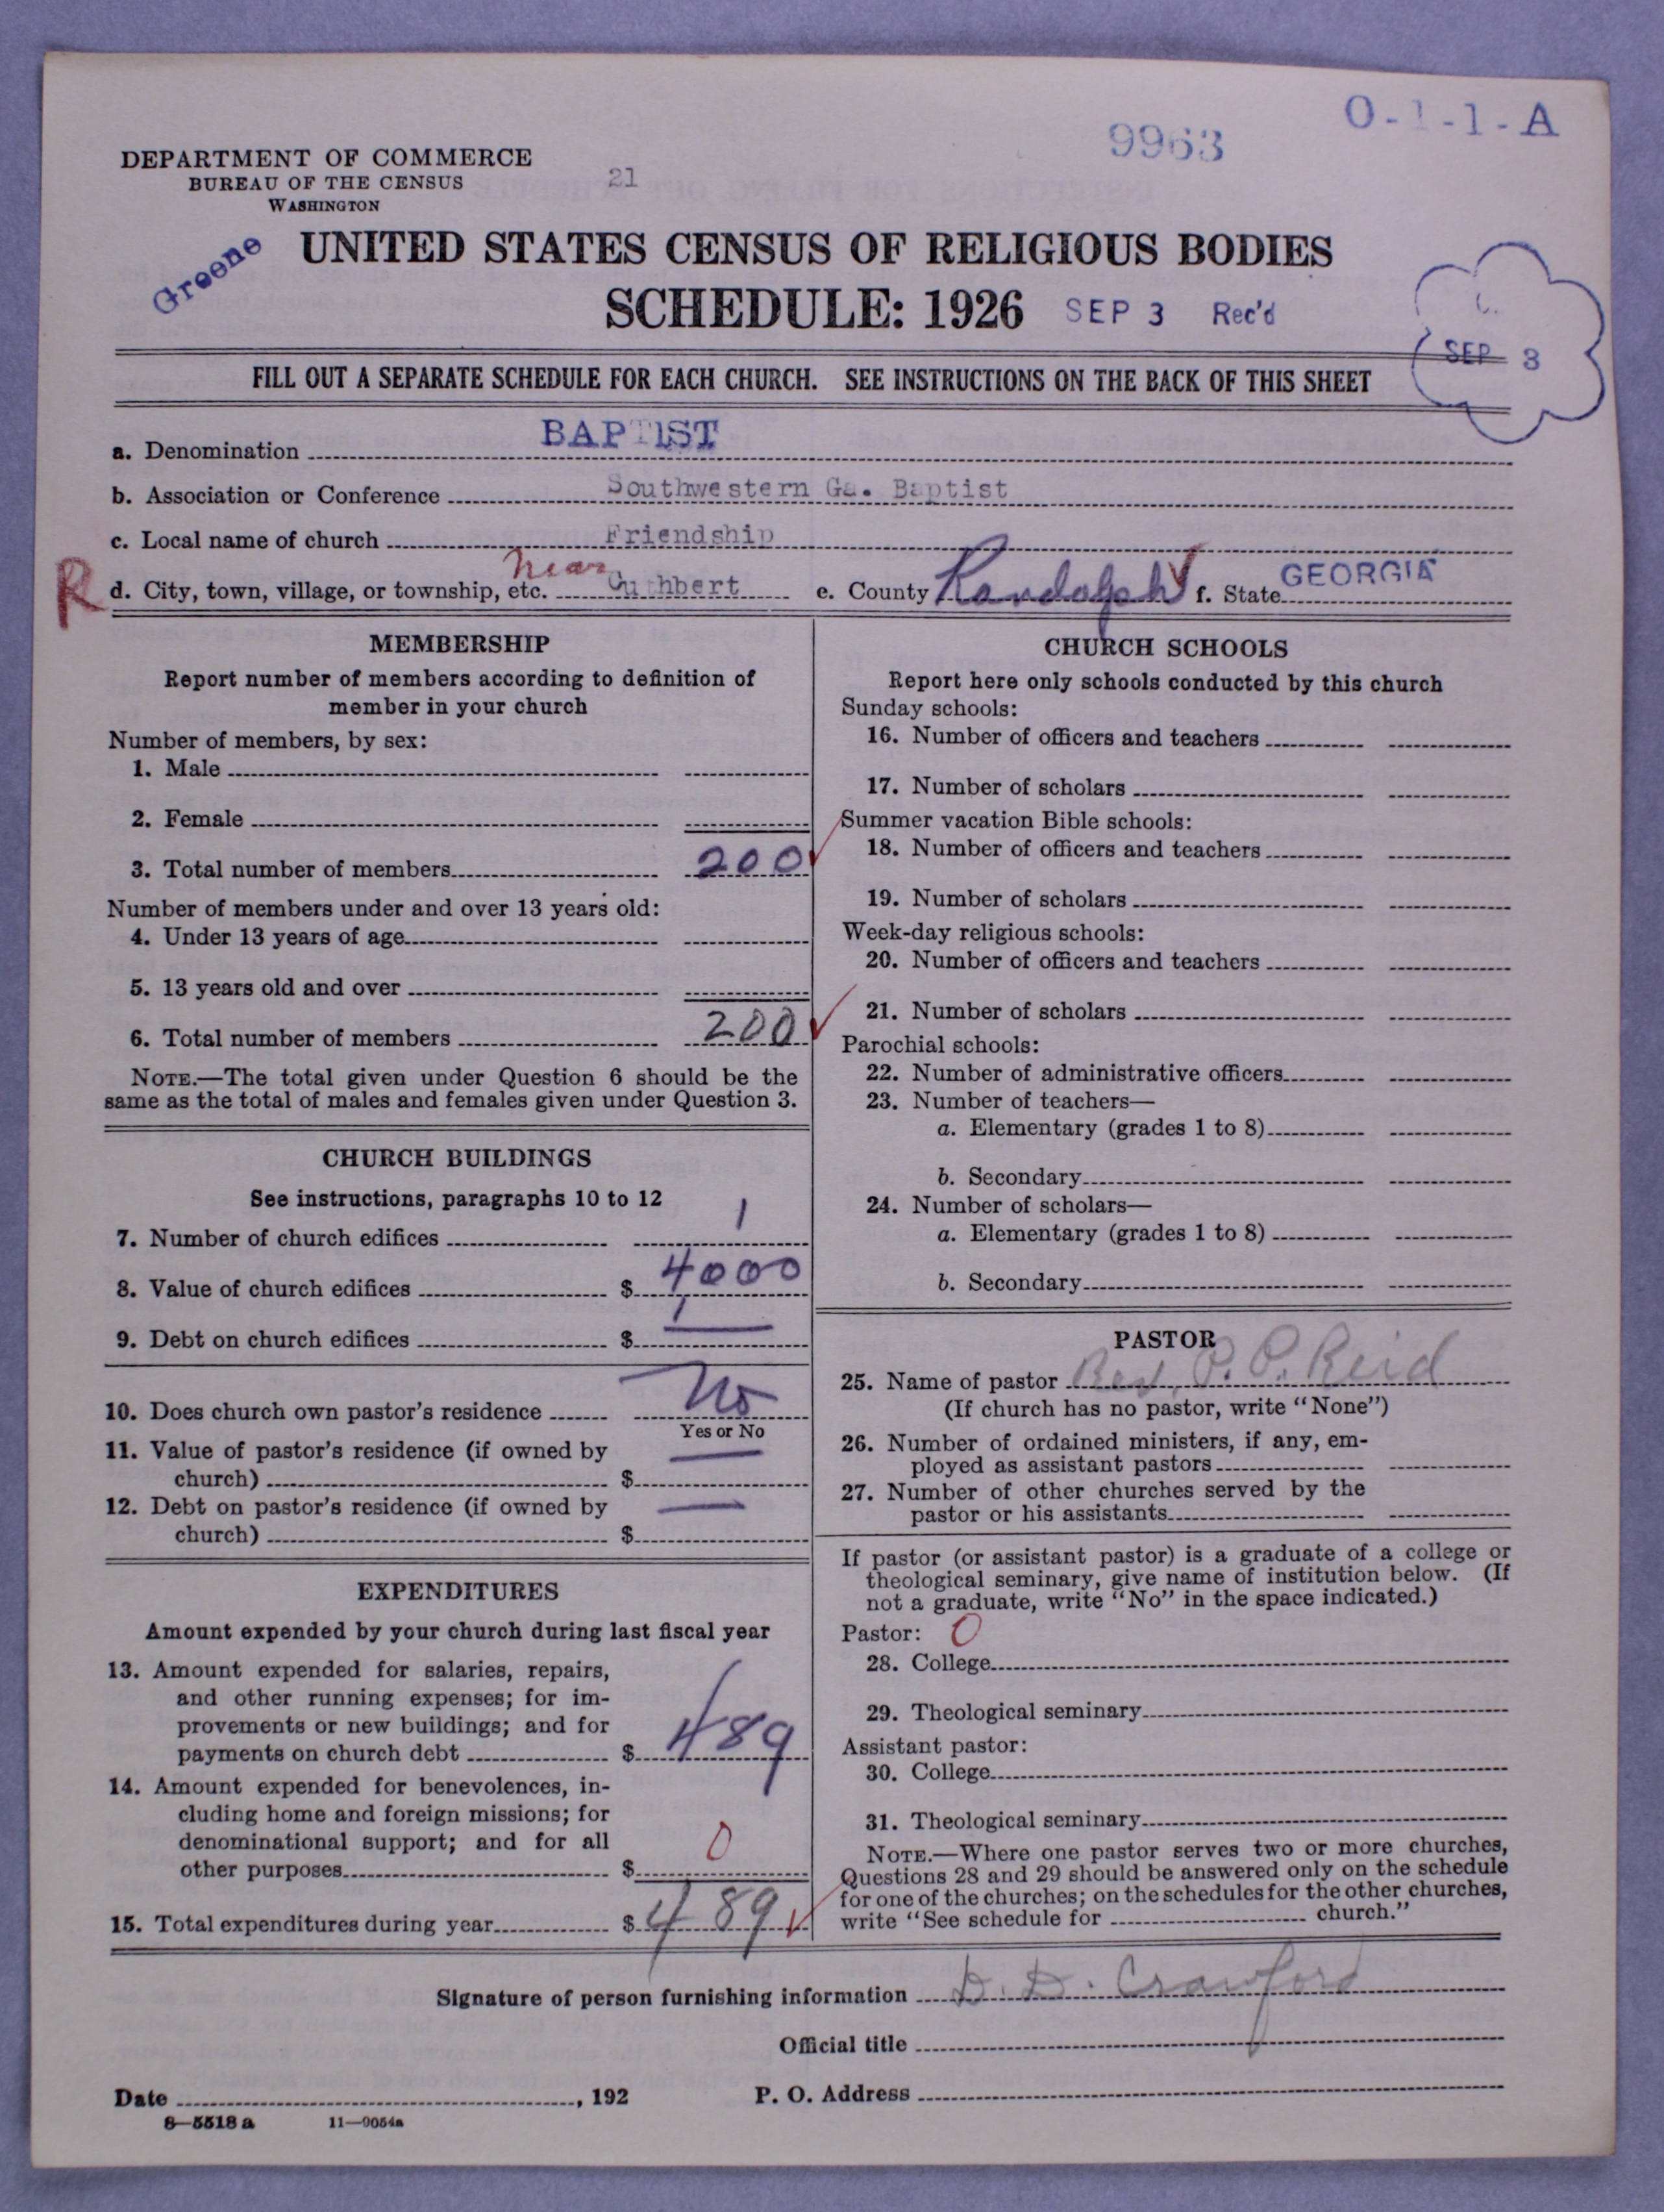 O-1-1-A
9963
DEPARTMENT OF COMMERCE
BUREAU OF THE CENSUS
WASHINGTON
21
Greene
UNITED STATES CENSUS OF RELIGIOUS BODIES
SCHEDULE: 1926 SEP 3 Rec'd
SEP 3
FILL OUT A SEPARATE SCHEDULE FOR EACH CHURCH. SEE INSTRUCTIONS ON THE BACK OF THIS SHEET
a. Denomination BAPTIST
b. Association or Conference Southwestern Ga. Baptist
c. Local name of church Friendship
R d. City, town, village, or township, etc. near Cuthbert e. County Randolph f. State GEORGIA
MEMBERSHIP
Report number of members according to definition of
member in your church
Number of members, by sex:
1. Male
2. Female
3. Total number of members 200
Number of members under and over 13 years old:
4. Under 13 years of age
5. 13 years old and over
6. Total number of members 200
NOTE.—The total given under Question 6 should be the
same as the total of males and females given under Question 3.
CHURCH BUILDINGS
See instructions, paragraphs 10 to 12
7. Number of church edifices 1
8. Value of church edifices $ 4000
9. Debt on church edifices $ —
10. Does church own pastor's residence No
Yes or No
11. Value of pastor's residence (if owned by
church) $ —
12. Debt on pastor's residence (if owned by
church) $ —
EXPENDITURES
Amount expended by your church during last fiscal year
13. Amount expended for salaries, repairs,
and other running expenses; for im-
provements or new buildings; and for
payments on church debt $ 489
14. Amount expended for benevolences, in-
cluding home and foreign missions; for
denominational support; and for all
other purposes $ 0
15. Total expenditures during year $ 489
CHURCH SCHOOLS
Report here only schools conducted by this church
Sunday schools:
16. Number of officers and teachers
17. Number of scholars
Summer vacation Bible schools:
18. Number of officers and teachers
19. Number of scholars
Week-day religious schools:
20. Number of officers and teachers
21. Number of scholars
Parochial schools:
22. Number of administrative officers
23. Number of teachers—
a. Elementary (grades 1 to 8)
b. Secondary
24. Number of scholars—
a. Elementary (grades 1 to 8)
b. Secondary
PASTOR
25. Name of pastor Rev. P. P. Reid
(If church has no pastor, write "None")
26. Number of ordained ministers, if any, em-
ployed as assistant pastors
27. Number of other churches served by the
pastor or his assistants
If pastor (or assistant pastor) is a graduate of a college or
theological seminary, give name of institution below. (If
not a graduate, write "No" in the space indicated.)
Pastor: 0
28. College
29. Theological seminary
Assistant pastor:
30. College
31. Theological seminary
NOTE.—Where one pastor serves two or more churches,
Questions 28 and 29 should be answered only on the schedule
for one of the churches; on the schedules for the other churches,
write "See schedule for church."
Signature of person furnishing information D. D. Crawford
Official title
Date , 192 P. O. Address
8—5518 a 11—9054a